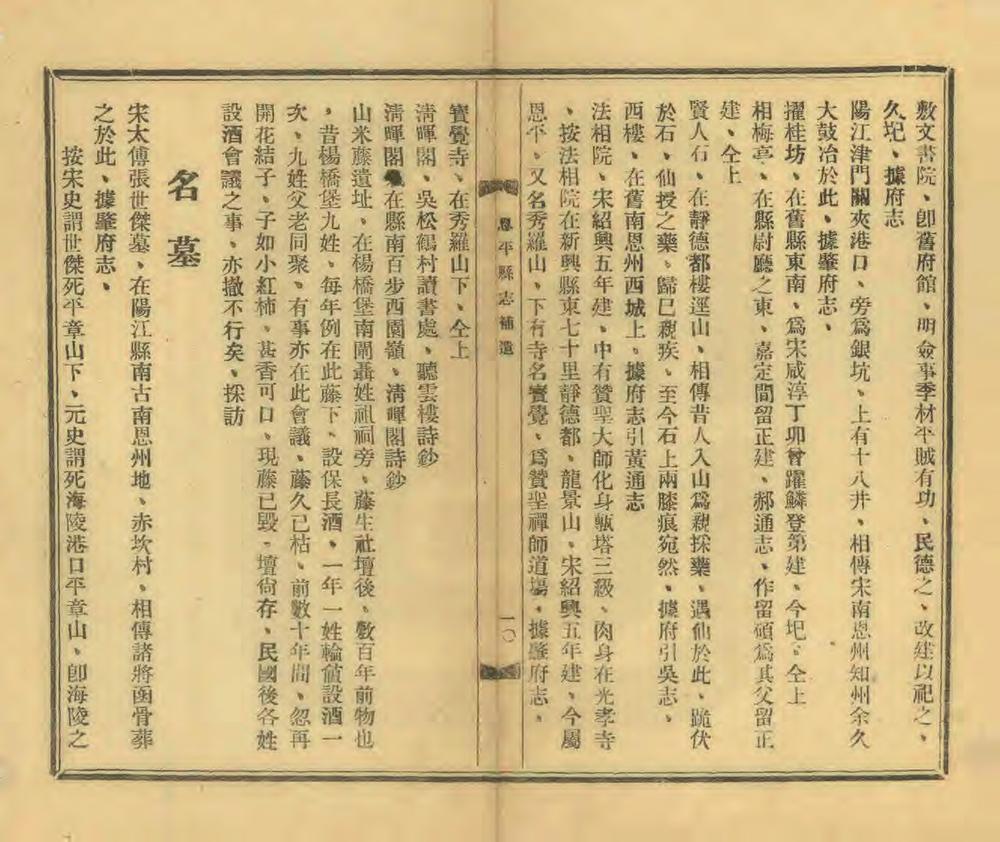 敷文書院、卽舊府館、明僉事季材平賊有功、民德之、改建以祀之、
久圮、據府志
陽江津門關夾港口、旁爲銀坑、上有十八井、相傳宋南恩州知州余久
大鼓冶於此、據肇府志、
擢桂坊、在舊縣東南、爲宋咸淳丁卯曾躍鱗登第建、今圮、仝上
相梅亭、在縣尉廳之東、嘉定間留正建、郝通志、作留碩爲其父留正
建、仝上
賢人石、在靜德都樓逕山、相傳昔人入山爲親採藥、遇仙於此、跪伏
於石、仙授之藥、歸已親疾、至今石上兩膝痕宛然、據府引吳志、
西樓、在舊南恩州西城上、據府志引黃通志
法相院、宋紹興五年建、中有贊聖大師化身甎塔三級、肉身在光孝寺
、按法相院在新興縣東七十里靜德都、龍景山、宋紹興五年建、今屬
恩平、又名秀羅山、下有寺名寶覺、爲贊聖禪師道場、據肇府志、
恩平縣志補遺
一〇
寶覺寺、在秀羅山下、仝上
淸暉閣、吳松鶴村讀書處、聽雲樓詩鈔
淸暉閣、在縣南百步西園嶺、淸暉閣詩鈔
山米藤遺址、在楊橋堡南閘聶姓祖祠旁、藤生社壇後、數百年前物也
，昔楊橋堡九姓、每年例在此藤下、設保長酒、一年一姓輪値設酒一
次、九姓父老同聚、有事亦在此會議、藤久已枯、前數十年間、忽再
開花結子、子如小紅柿、甚香可口、現藤已毀、壇尙存、民國後各姓
設酒會議之事、亦撤不行矣、採訪
名墓
宋太傅張世傑墓、在陽江縣南古南恩州地、赤坎村、相傳諸將函骨葬
之於此、據肇府志、
按宋史謂世傑死平章山下、元史謂死海陵港口平章山、卽海陵之